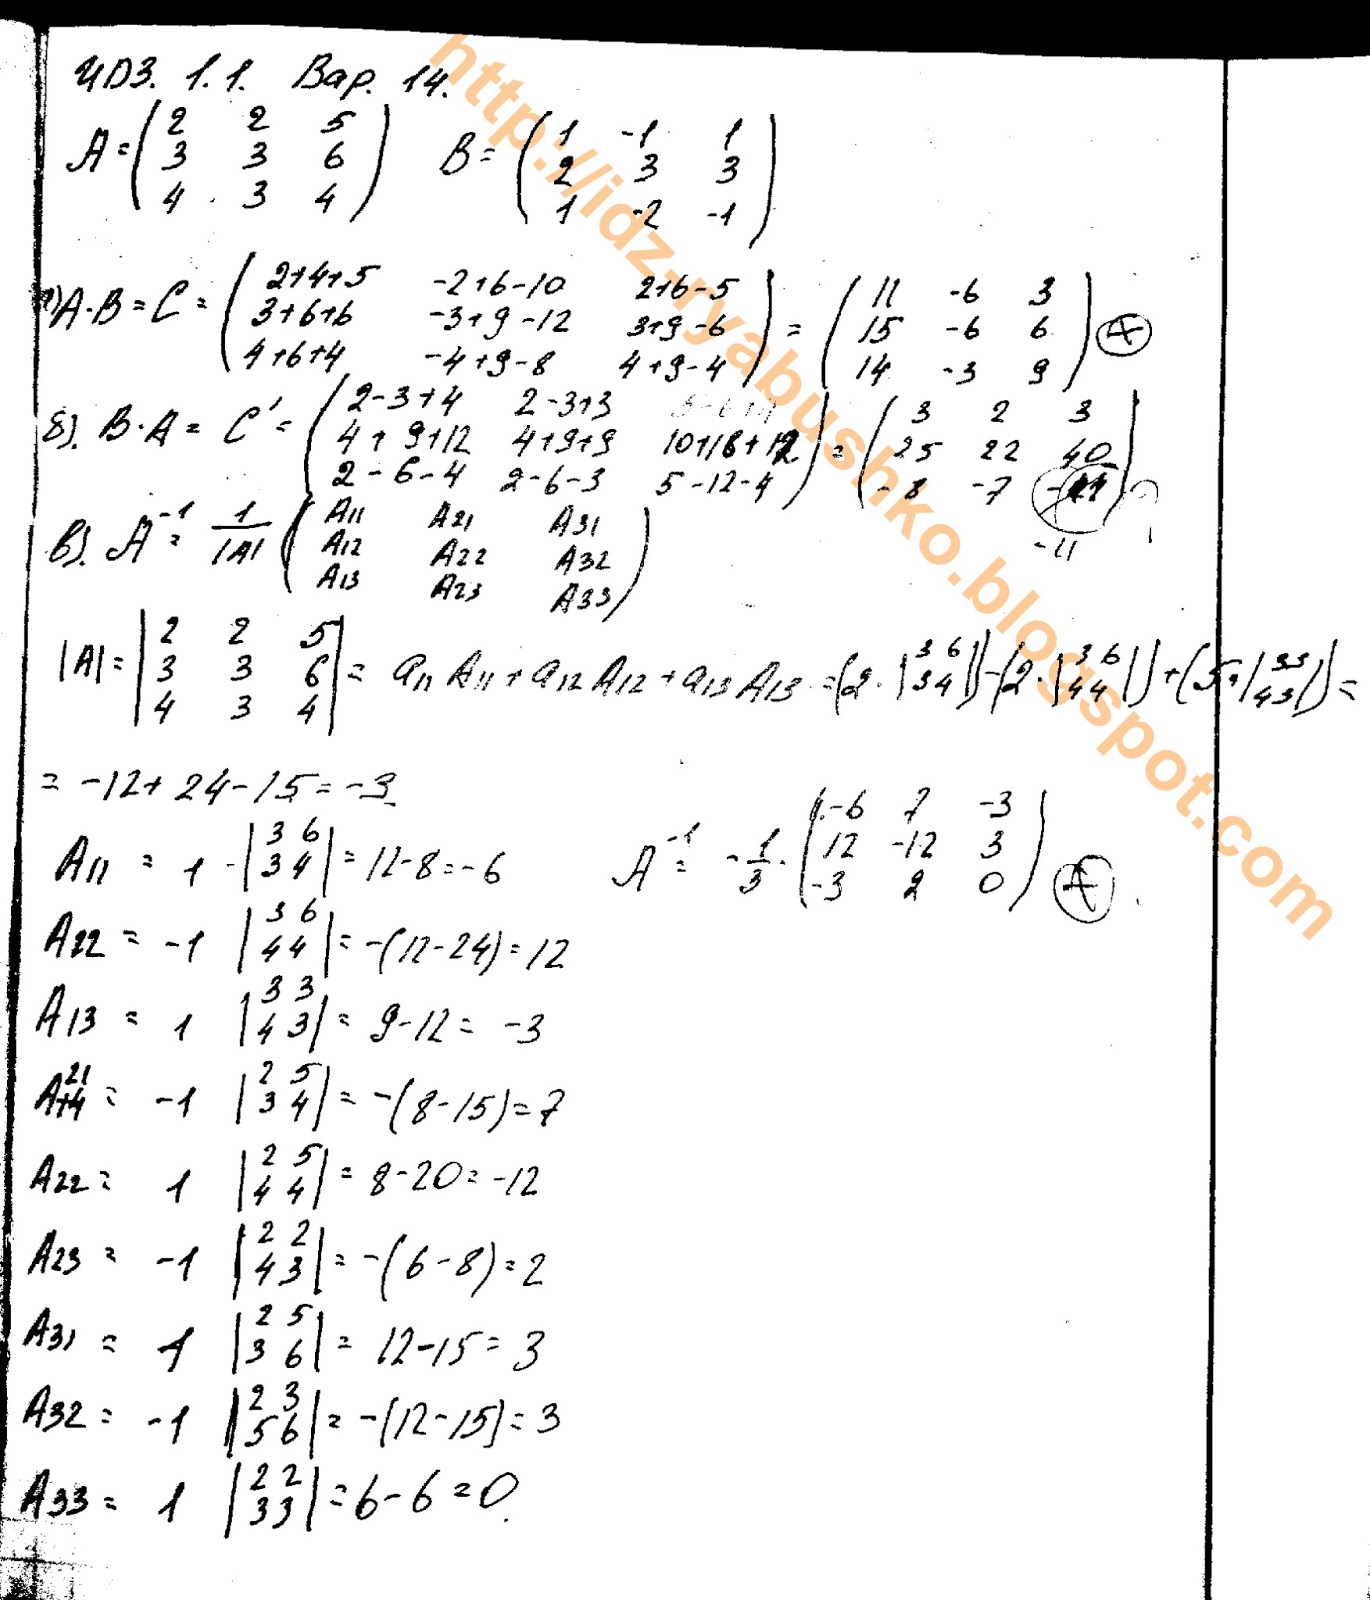 ИДЗ. 1.1. Вар. 14.
A = ( 2 2 5 ; 3 3 6 ; 4 3 4 ) B = ( 1 -1 1 ; 2 3 3 ; 1 -2 -1 )
A·B = C = ( 2+4+5 -2+6-10 2+6-5 ; 3+6+6 -3+9-12 3+9-6 ; 4+6+4 -4+9-8 4+9-4 ) = ( 11 -6 3 ; 15 -6 6 ; 14 -3 9 ) +
б). B·A = C' = ( 2-3+4 2-3+3 ; 4+9+12 4+9+9 10+18+12 ; 2-6-4 2-6-3 5-12-4 ) = ( 3 2 3 ; 25 22 40 ; -8 -7 -11 )
-11
в). A⁻¹ = 1/|A| ( A11 A21 A31 ; A12 A22 A32 ; A13 A23 A33 )
|A| = | 2 2 5 ; 3 3 6 ; 4 3 4 | = a11 A11 + a12 A12 + a13 A13 = (2·| 3 6 ; 3 4 |) - (2·| 3 6 ; 4 4 |) + (5·| 3 3 ; 4 3 |) =
= -12+24-15 = -3
A11 = 1·| 3 6 ; 3 4 | = 12-8 = -6
A⁻¹ = -1/3 · ( -6 7 -3 ; 12 -12 3 ; -3 2 0 ) +
A22 = -1 | 3 6 ; 4 4 | = -(12-24) = 12
A13 = 1 | 3 3 ; 4 3 | = 9-12 = -3
A21 = -1 | 2 5 ; 3 4 | = -(8-15) = 7
A22 = 1 | 2 5 ; 4 4 | = 8-20 = -12
A23 = -1 | 2 2 ; 4 3 | = -(6-8) = 2
A31 = 1 | 2 5 ; 3 6 | = 12-15 = 3
A32 = -1 | 2 3 ; 5 6 | = -(12-15) = 3
A33 = 1 | 2 2 ; 3 3 | = 6-6 = 0.
http://idz-ryabushko.blogspot.com